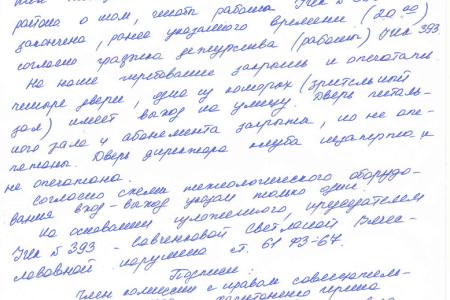 района о том, что работа УИК № 393
закончена, ранее указанного времени (20.00)
согласно графика дежурства (работы) УИК 393.
На наше требование закрыты и опечатаны
четыре двери, одна из которых (зрительный
зал) имеет выход на улицу. Дверь читаль-
ного зала и абонемента закрыта, но не опе-
чатаны. Дверь директора клуба незаперта и
не опечатана.
Согласно схемы технологического оборудо-
вания вход-выход указан только один.
На основании изложенного, председателем
УИК № 393 - Савченковой Светланой Вячес-
лавовной нарушена ст. 61 ФЗ-67.
Подписи:
Член комиссии с правом совещатель-